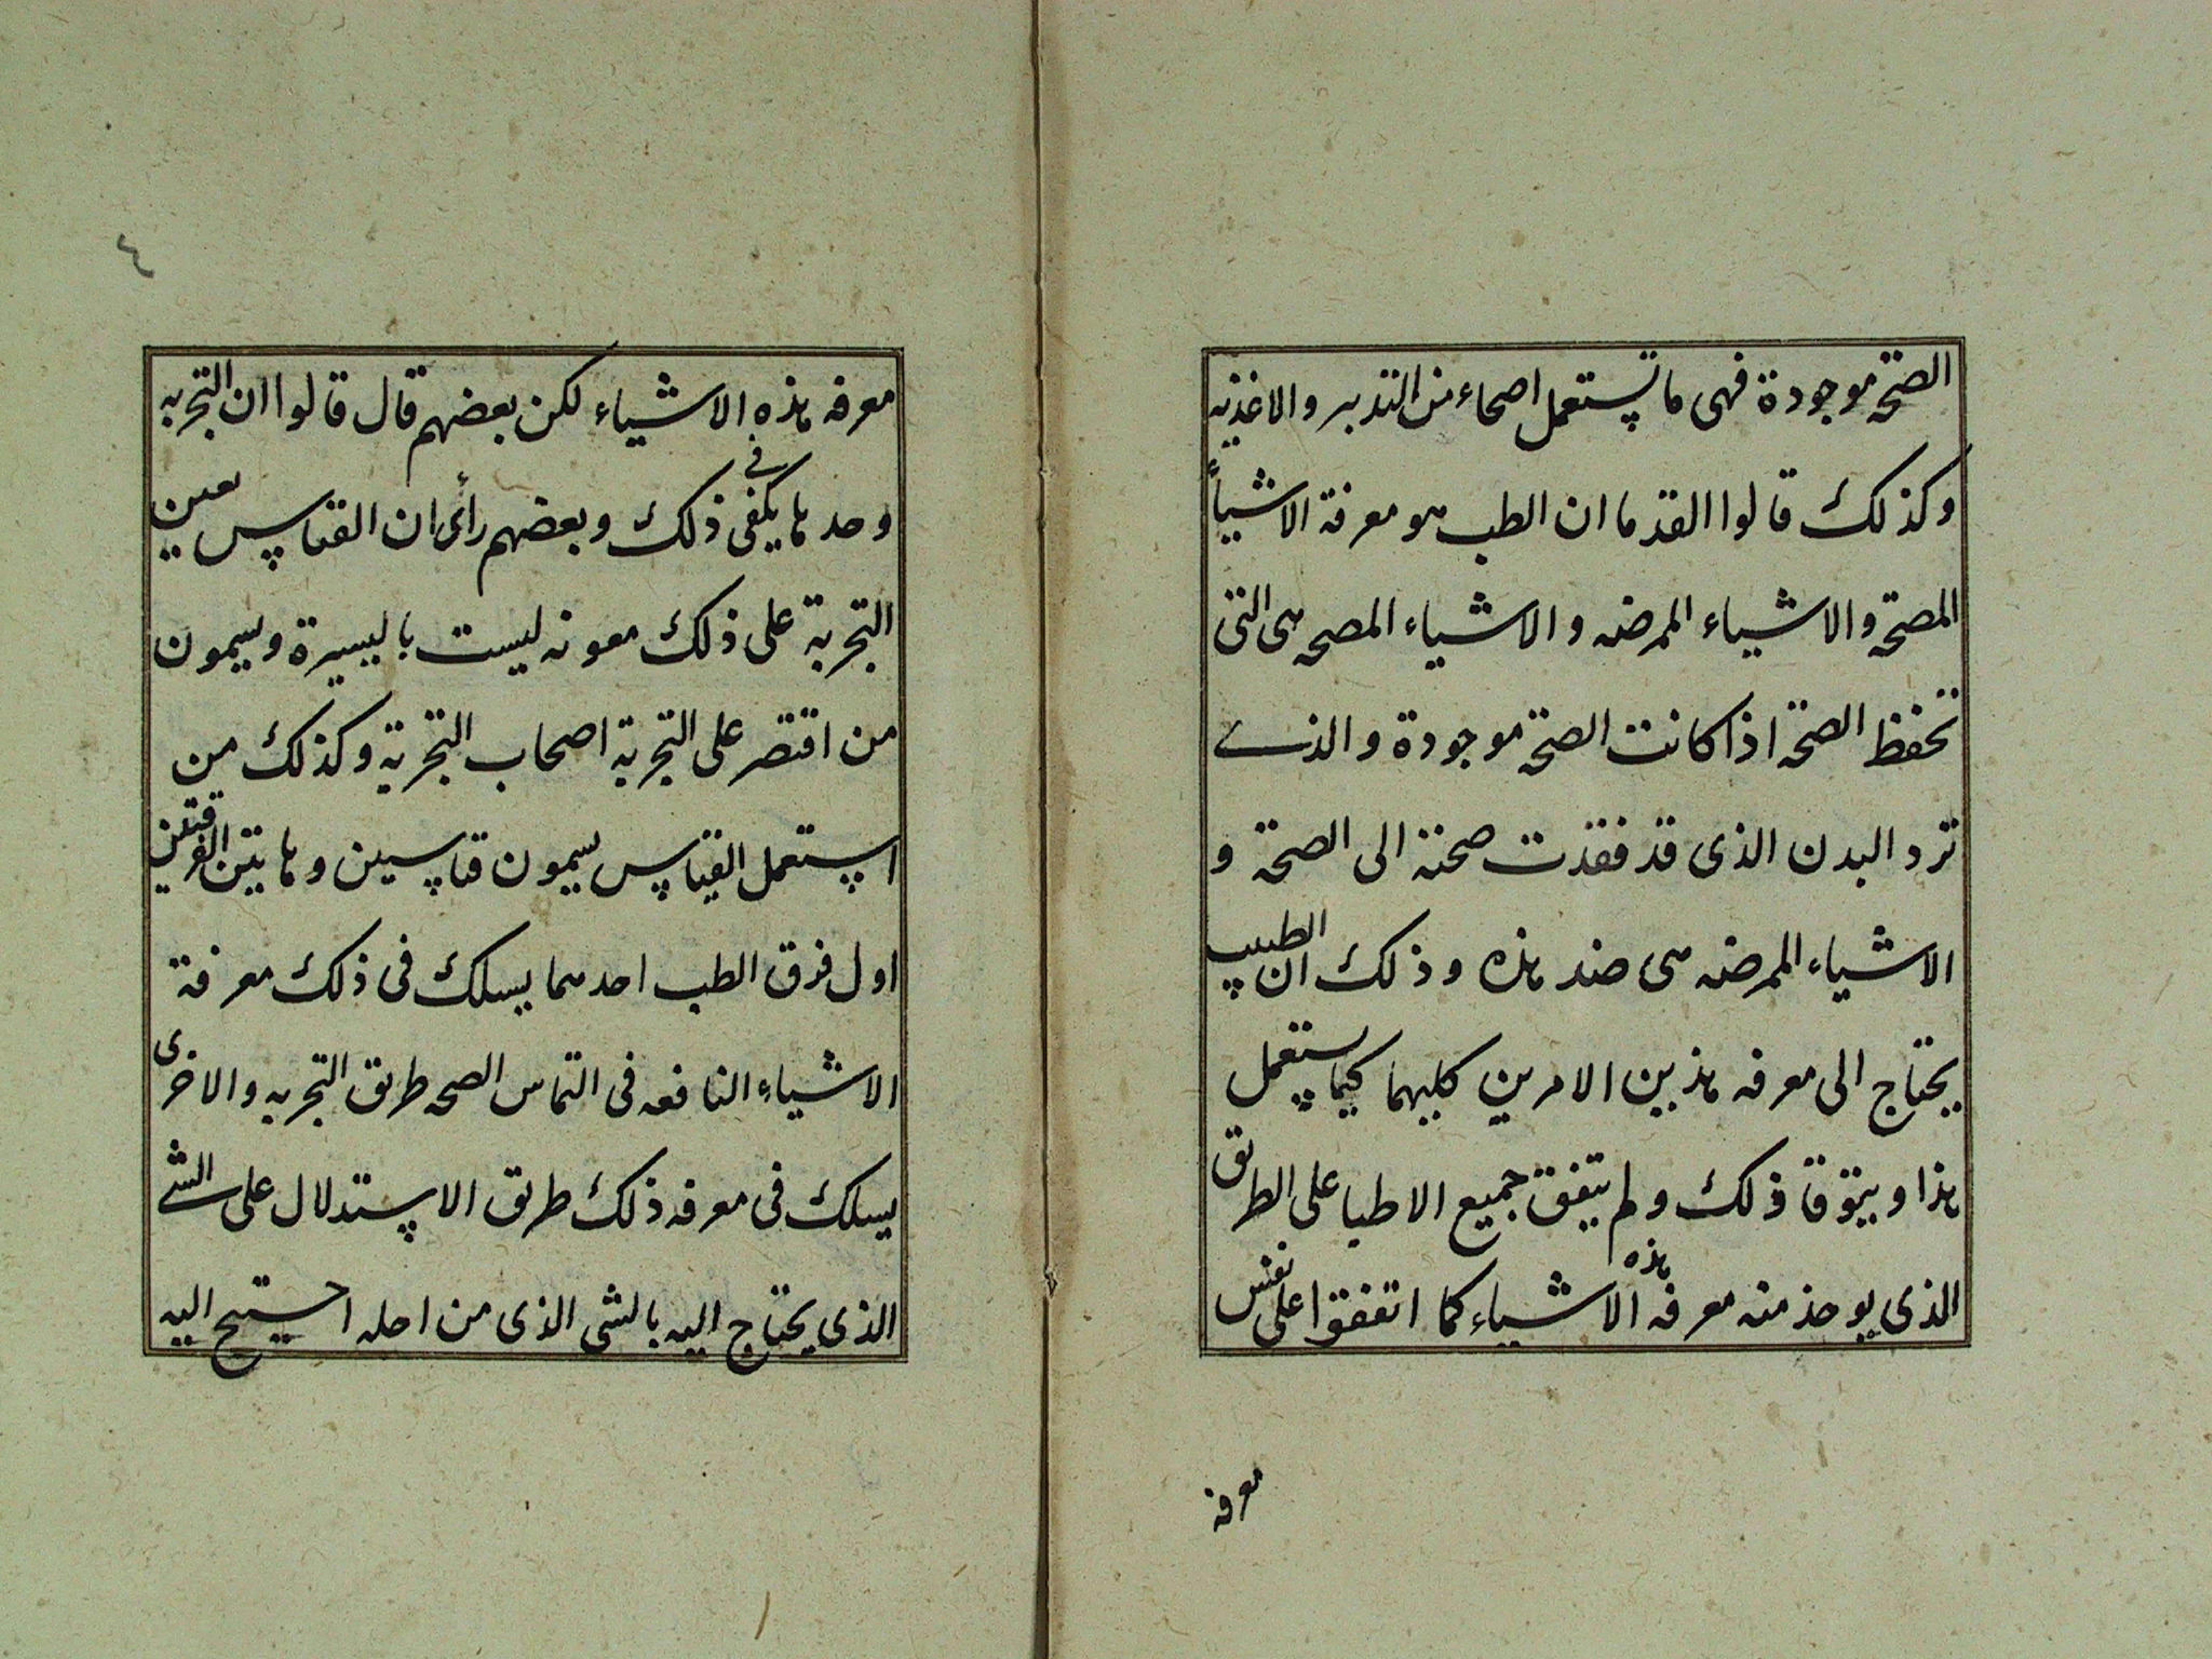 الصحة موجودة فهى ما يستعمل اصحاء من التدبير والاغذيه
وكذلك قالوا القدما ان الطب هو معرفة الاشياء
المصحة والاشياء الممرضه والاشياء المصحه هى التى
تحفظ الصحة اذا كانت الصحة موجودة والذى
ترد البدن الذى قد فقدت صحته الى الصحة و
الاشياء الممرضه هى ضد هذه وذلك ان الطبيب
يحتاج الى معرفه هذين الامرين كليهما كيما يستعمل
هذا ويتوقا ذلك ولم يتفق جميع الاطبا على الطريق
الذى يوخذ منه معرفه هذه الاشياء كما اتفقوا على نفس
معرفه
٤
معرفه هذه الاشياء لكن بعضهم قال قالوا ان التجربه
وحدها يكفى فى ذلك وبعضهم رأى ان القياس يعين
التجربة على ذلك معونه ليست باليسيرة ويسمون
من اقتصر على التجربة اصحاب التجربة وكذلك من
استعمل القياس يسمون قياسين وهاتين الفرقتين
اول فرق الطب احدهما يسلك فى ذلك معرفة
الاشياء النافعه فى التماس الصحه طريق التجربه والاخرى
يسلك فى معرفه ذلك طريق الاستدلال على الشى
الذى يحتاج اليه بالشى الذى من اجله احتيج اليه